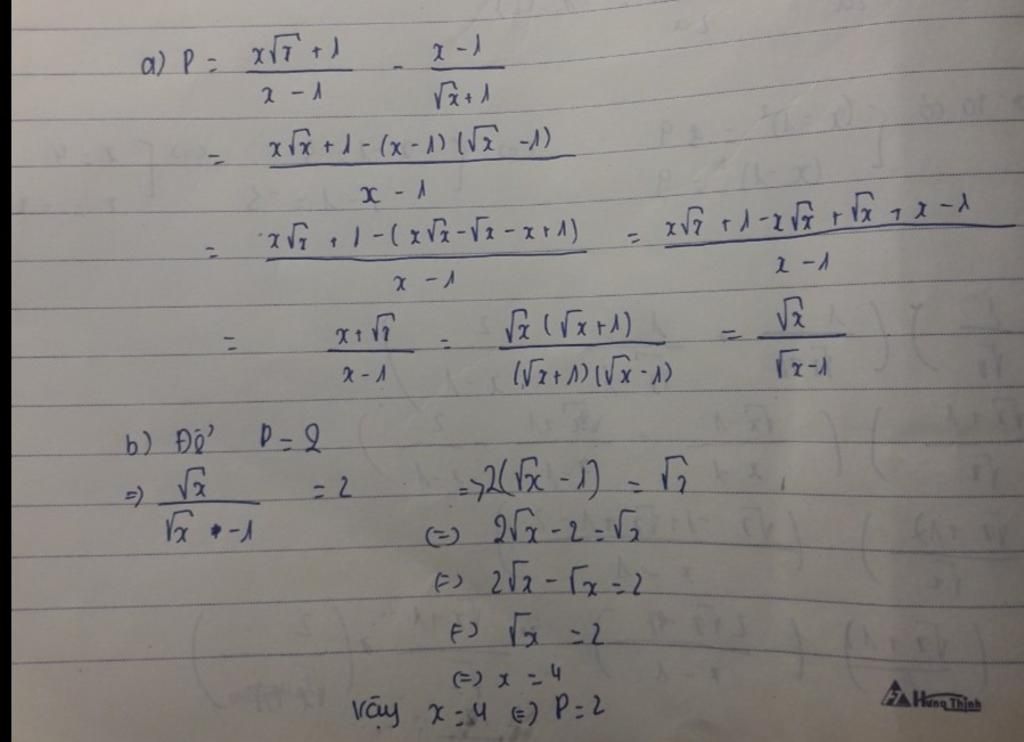 a) P = (x√x + 1)/(x - 1) - (x - 1)/(√x + 1)
= (x√x + 1 - (x - 1)(√x - 1))/(x - 1)
= (x√x + 1 - (x√x - √x - x + 1))/(x - 1) = (x√x + 1 - x√x + √x + x - 1)/(x - 1)
= (x + √x)/(x - 1) = (√x(√x + 1))/((√x + 1)(√x - 1)) = √x/(√x - 1)
b) Để P = 2
=> √x/(√x - 1) = 2 => 2(√x - 1) = √x
<=> 2√x - 2 = √x
<=> 2√x - √x = 2
<=> √x = 2
<=> x = 4
Vậy x = 4 <=> P = 2
Hung Thinh